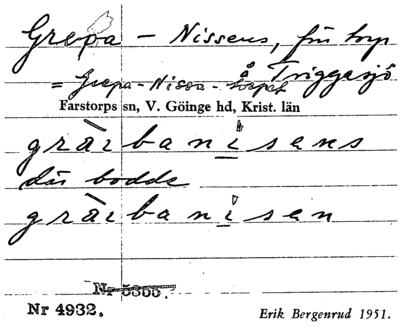 Grepa - Nissens, fin torp
= Grepa-Nissa-torpet å Triggasjö
Farstorps sn, V. Göinge hd, Krist. län
gräi banisens
där bodde
gräi banisen
Nr 5355.
Nr 4932. Erik Bergenrud 1951.